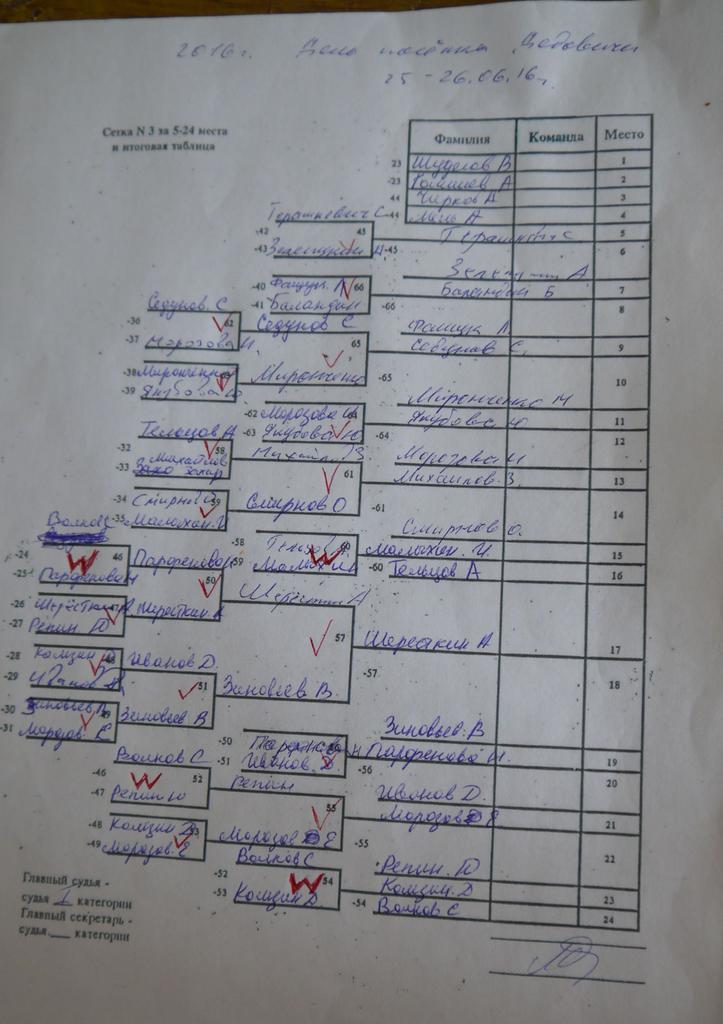 2016г. День посёлка
25-26.06.16г.
Сетка N 3 за 5-24 места
и итоговая таблица
Фамилия Команда Место
23 Шуделов В 1
-23 А 2
44 Чирков А 3
-44 Мень А 4
-42 Терашкевич С 45 5
-43 Зеленцкий А -45 6
Зеленцкий А
-40 66 7
-41 Баландин Баландин Б
-66 8
-36 Седунов С 62 Седунов С 65 Седунов С. 9
-37 Морозова И
-38 Миронченко Миронченко -65 10
-39 Якубова Ю Миронченко И
-62 Морозова И Якубова Ю 11
-63 Якубова Ю -64 12
-32 Тельцов А 58 Морозова И
-33 Михайлов 61 Михайлов З. 13
-34 Смирнов О 59 Смирнов О -61 14
-35 Малыхин И Смирнов О.
-58 Тельцов 60 Малыхин И 15
-59 Малыхин -60 Тельцов А 16
-24 Волков С 46 Парфенова Н 50
-25 Парфенова Н
-26 Шересткин А 47 Шересткин А
-27 Репин Ю
Шересткин А 57 Шересткин А 17
-57 18
-28 Комзин Д 48 Иванов Д. 51 Зиновьев В.
-29 Иванов Д
-30 Зиновьев В 49 Зиновьев В
-31 Морозов Е
Зиновьев В
-50 Парфенова Н Парфенова Н. 19
-51 Иванов Д -56 20
-46 Волков С 52 Репин 55 Иванов Д.
-47 Репин Ю Морозов Е 21
-48 Комзин Д 53 Морозов Е -55 22
-49 Морозов Е Репин. Ю
-52 Волков С 54 Комзин Д 23
-53 Комзин Д -54 Волков С 24
Главный судья -
судья I категории
Главный секретарь -
судья.___ категории